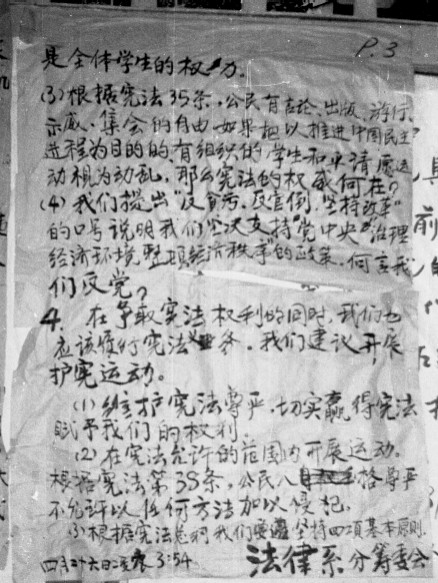 P.3
是全体学生的权力.
(3)根据宪法35条,公民有言论、出版、游行、
示威、集会的自由.如果把以推进中国民主
进程为目的的、有组织的学生和平请愿运
动视为动乱,那么宪法的权威何在?
(4)我们提出“反贪污、反官倒、坚持改革”
的口号说明我们坚决支持“党中央”“治理
经济环境,整顿经济秩序”的政策.何言我
们反党?
4. 在争取宪法权利的同时,我们也
应该履行宪法义务.我们建议开展
护宪运动。
(1)维护宪法尊严,切实赢得宪法
赋予我们的权利
(2)在宪法允许的范围内开展运动。
根据宪法第38条,公民人格尊严
不允许以任何方法加以侵犯.
(3)根据宪法总纲我们要坚持四项基本原则.
四月二十六日凌晨3:54
法律系分筹委会
具
前
的